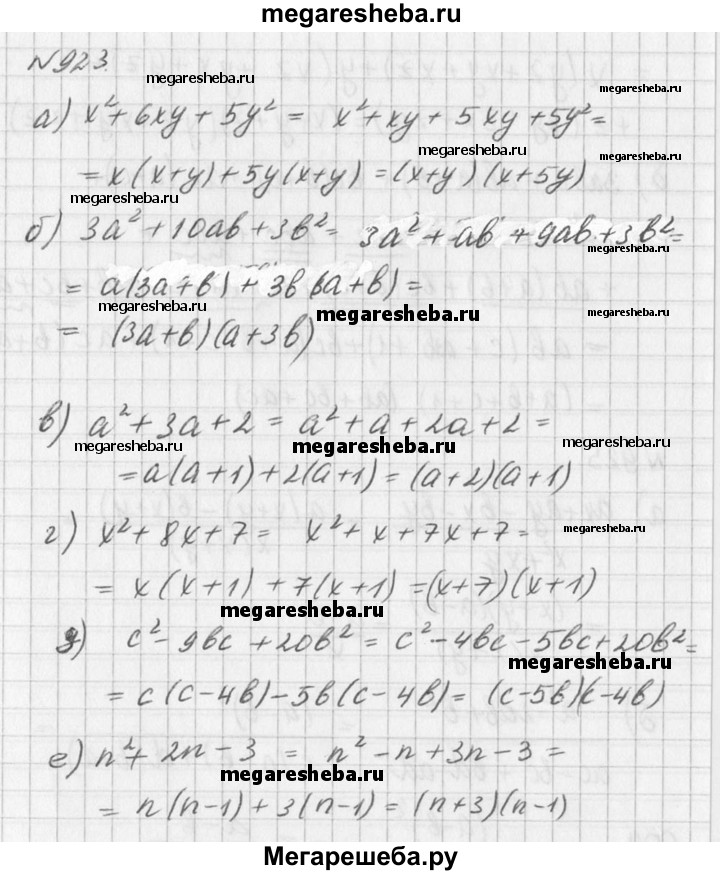 megaresheba.ru
№923.
megaresheba.ru
megaresheba.ru
а) x² + 6xy + 5y² = x² + xy + 5xy + 5y² =
megaresheba.ru
= x(x+y) + 5y(x+y) = (x+y)(x+5y)
megaresheba.ru
б) 3a² + 10ab + 3b² = 3a² + ab + 9ab + 3b² =
megaresheba.ru
= a(3a+b) + 3b(3a+b) =
megaresheba.ru
= (3a+b)(a+3b)
в) a² + 3a + 2 = a² + a + 2a + 2 =
megaresheba.ru
megaresheba.ru
megaresheba.ru
= a(a+1) + 2(a+1) = (a+2)(a+1)
г) x² + 8x + 7 = x² + x + 7x + 7 =
megaresheba.ru
= x(x+1) + 7(x+1) = (x+7)(x+1)
megaresheba.ru
д) c² - 9bc + 20b² = c² - 4bc - 5bc + 20b² =
megaresheba.ru
= c(c-4b) - 5b(c-4b) = (c-5b)(c-4b)
е) n² + 2n - 3 = n² - n + 3n - 3 =
megaresheba.ru
= n(n-1) + 3(n-1) = (n+3)(n-1)
Мегарешеба.ру